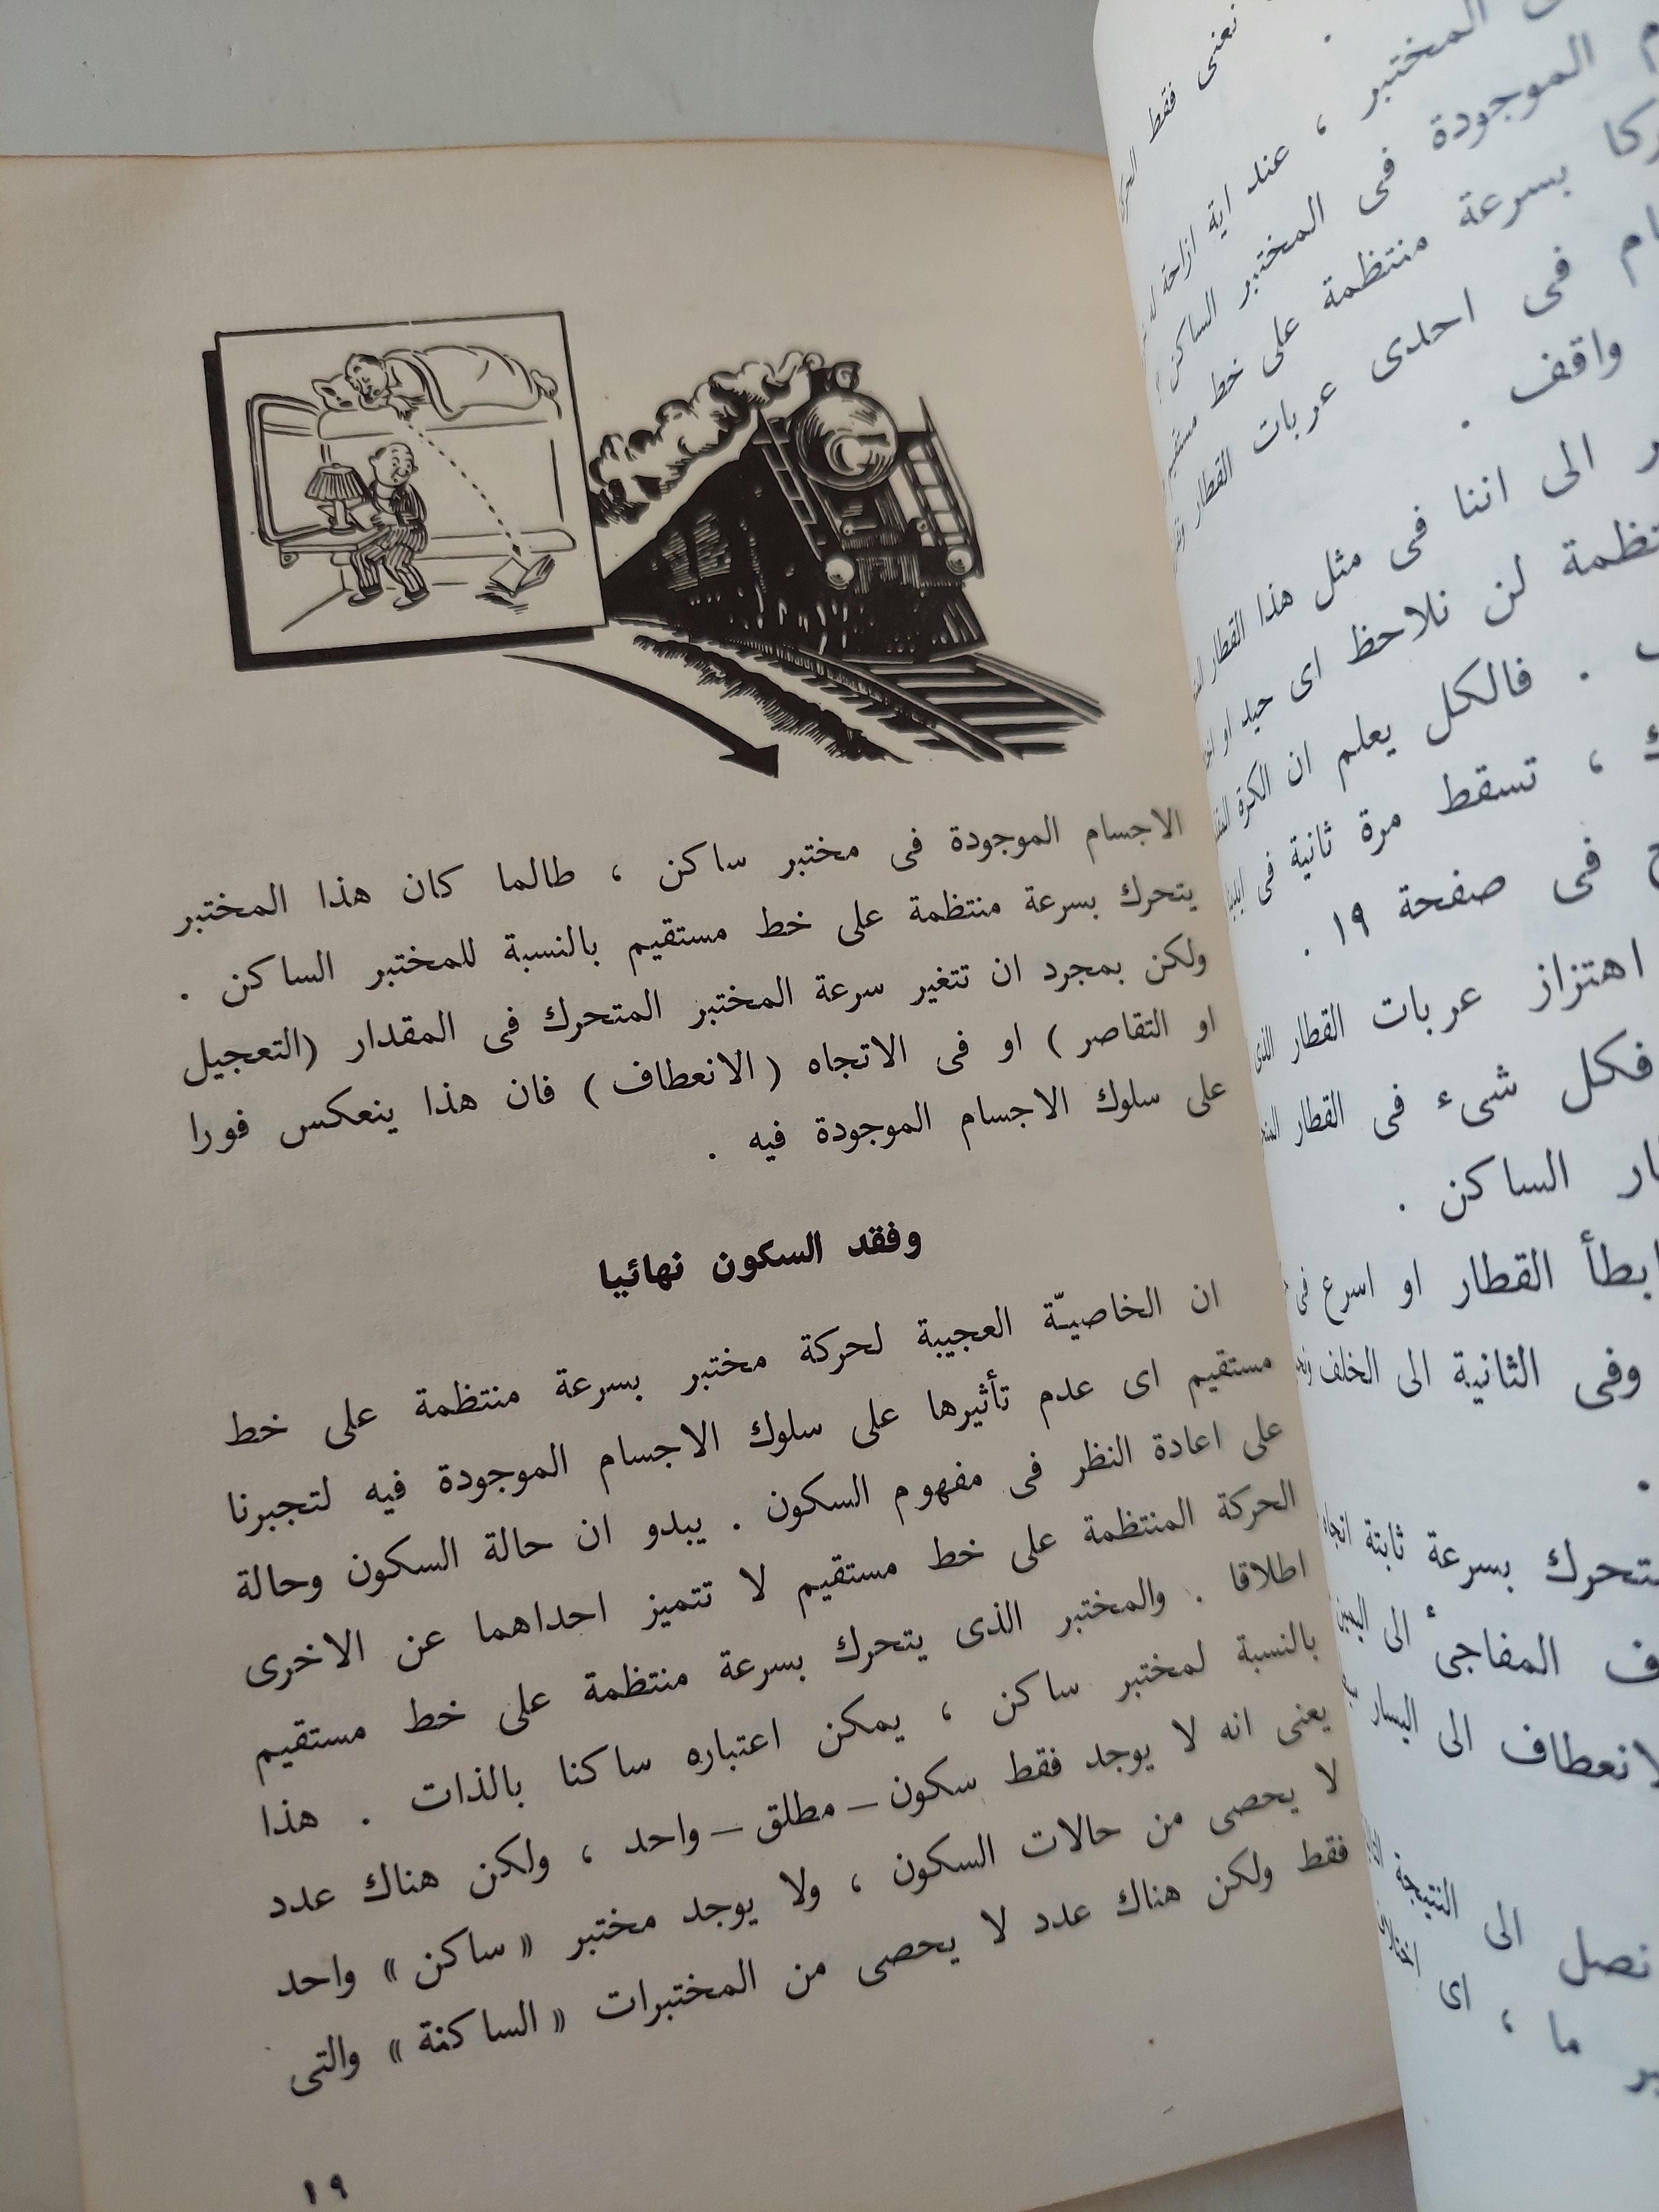 الاجسام الموجودة فى مختبر ساكن ، طالما كان هذا المختبر
يتحرك بسرعة منتظمة على خط مستقيم بالنسبة للمختبر الساكن .
ولكن بمجرد ان تتغير سرعة المختبر المتحرك فى المقدار (التعجيل
او التقاصر ) او فى الاتجاه ( الانعطاف ) فان هذا ينعكس فورا
على سلوك الاجسام الموجودة فيه .
وفقد السكون نهائيا
ان الخاصيّة العجيبة لحركة مختبر بسرعة منتظمة على خط
مستقيم اى عدم تأثيرها على سلوك الاجسام الموجودة فيه لتجبرنا
على اعادة النظر فى مفهوم السكون . يبدو ان حالة السكون وحالة
الحركة المنتظمة على خط مستقيم لا تتميز احداهما عن الاخرى
اطلاقا . والمختبر الذى يتحرك بسرعة منتظمة على خط مستقيم
بالنسبة لمختبر ساكن ، يمكن اعتباره ساكنا بالذات . هذا
يعنى انه لا يوجد فقط سكون – مطلق – واحد ، ولكن هناك عدد
لا يحصى من حالات السكون ، ولا يوجد مختبر « ساكن » واحد
فقط ولكن هناك عدد لا يحصى من المختبرات « الساكنة » والتى
١٩
نعنى فقط
المختبر ، عند اية ازاحة
الموجودة فى المختبر الساكن
بسرعة منتظمة على خط
فى احدى عربات القطار
واقف .
الى اننا فى مثل هذا القطار
لن نلاحظ اى حيد او
. فالكل يعلم ان الكرة
، تسقط مرة ثانية فى
فى صفحة ١٩ .
اهتزاز عربات القطار الذى
فكل شىء فى القطار
الساكن .
ابطأ القطار او اسرع فى
وفى الثانية الى الخلف
بسرعة ثابتة
المفاجىء الى اليمين
الى اليسار
نصل الى النتيجة
ما ، اى